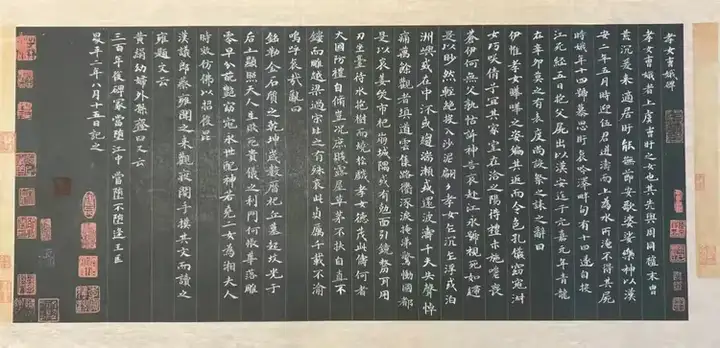 孝女曹娥碑
孝女曹娥者上虞曹盱之女也其先與周同祖末冑
荒沉爰來適居盱能撫節安歌婆娑樂神以漢
安二年五月時迎伍君逆濤而上為水所淹不得其屍
時娥年十四號慕思盱哀吟澤畔旬有十四遂自投
江死經五日抱父屍出以漢安迄于元嘉元年青龍
在辛卯莫之有表度尚設祭之誄之辭曰
伊惟孝女曄曄之姿偏其返而令色孔儀窈窕淑
女巧咲倩兮宜其家室在洽之陽待禮未施嗟喪
蒼伊何無父孰怙訴神告哀赴江永號視死如歸
是以眇然輕絕投入沙泥翩〻孝女乍沉乍浮或泊
洲嶼或在中流或趨湍瀨或還波濤千夫失聲悼
痛萬餘觀者填道雲集路衢流淚掩涕驚慟國都
是以哀姜哭市杞崩城隅或有剋面引鏡剺耳用
刀坐臺待水抱樹而燒於戲孝女德茂此儔何者
大國防禮自脩豈況庶賤露屋草茅不扶自直不
鏤而雕越梁過宋比之有殊哀此貞厲千載不渝
嗚呼哀哉亂曰
銘勒金石質之乾坤歲數曆祀丘墓起墳光于
后土顯照天人生賤死貴義之利門何悵華落雕
零早分葩艷窈窕永世配神若堯二女為湘夫人
時效仿佛以招後昆
漢議郎蔡雍聞之來觀夜闇手摸其文而讀之
雍題文云
黃絹幼婦外孫䪡臼又云
三百年後碑冢當墮江中當墮不墮逢王叵
昇平二年八月十五日記之